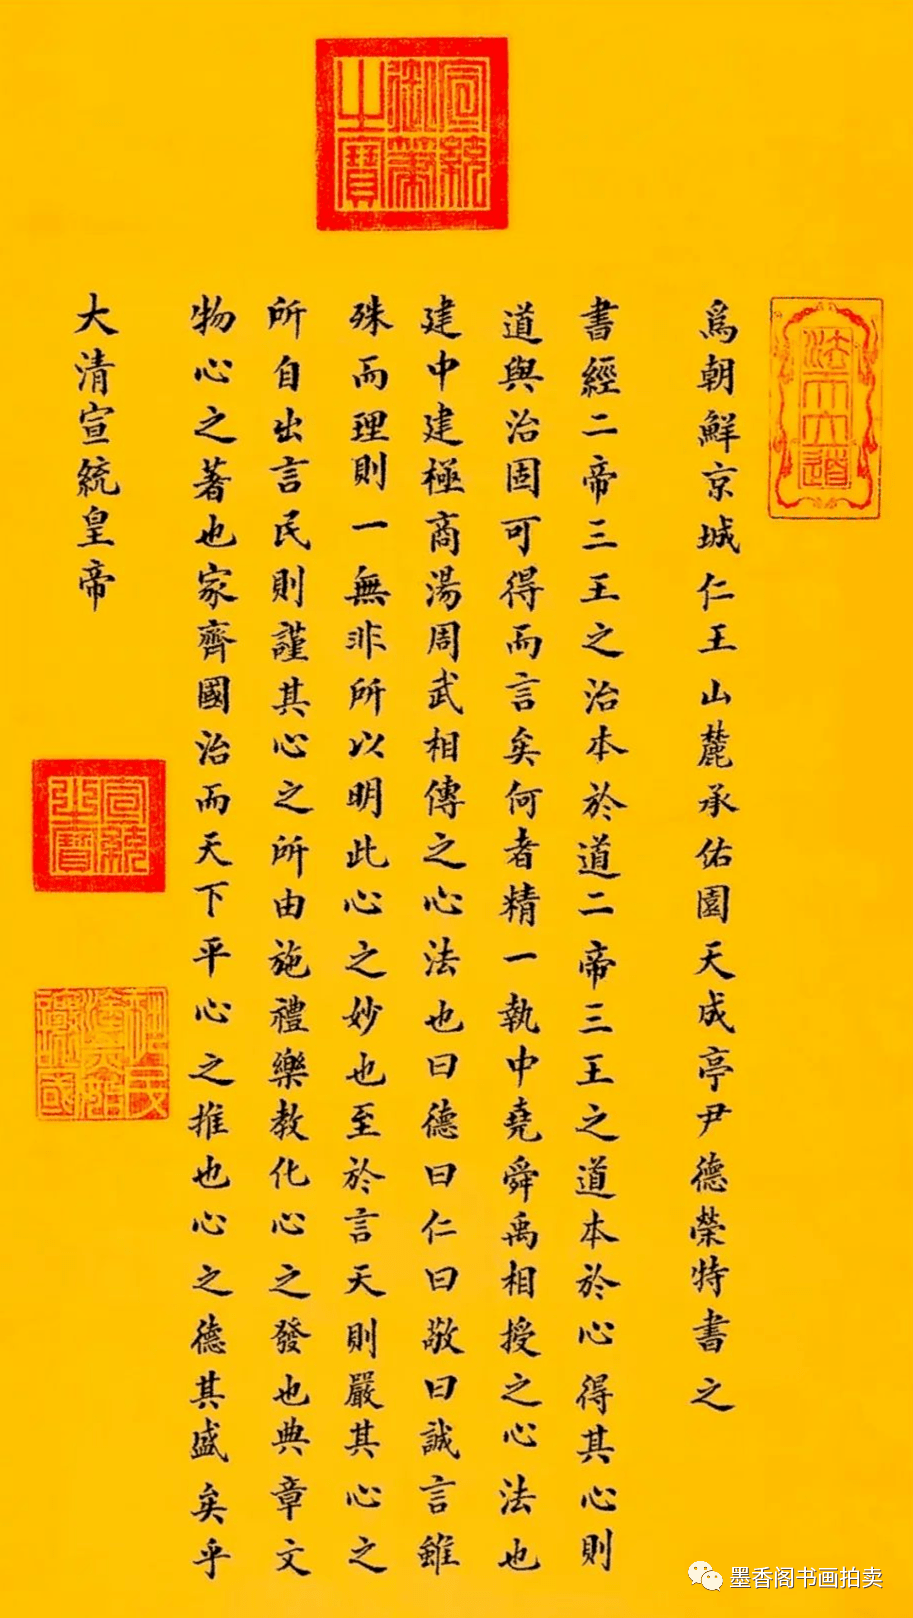 宣統御筆之寶
法天立道
爲朝鮮京城仁王山麓承佑園天成亭尹德榮特書之
書經二帝三王之治本於道二帝三王之道本於心得其心則
道與治固可得而言矣何者精一執中堯舜禹相授之心法也
建中建極商湯周武相傳之心法也曰德曰仁曰敬曰誠言雖
殊而理則一無非所以明此心之妙也至於言天則嚴其心之
所自出言民則謹其心之所由施禮樂教化心之發也典章文
物心之著也家齊國治而天下平心之推也心之德其盛矣乎
大清宣統皇帝
宣統之寶
墨香阁书画拍卖